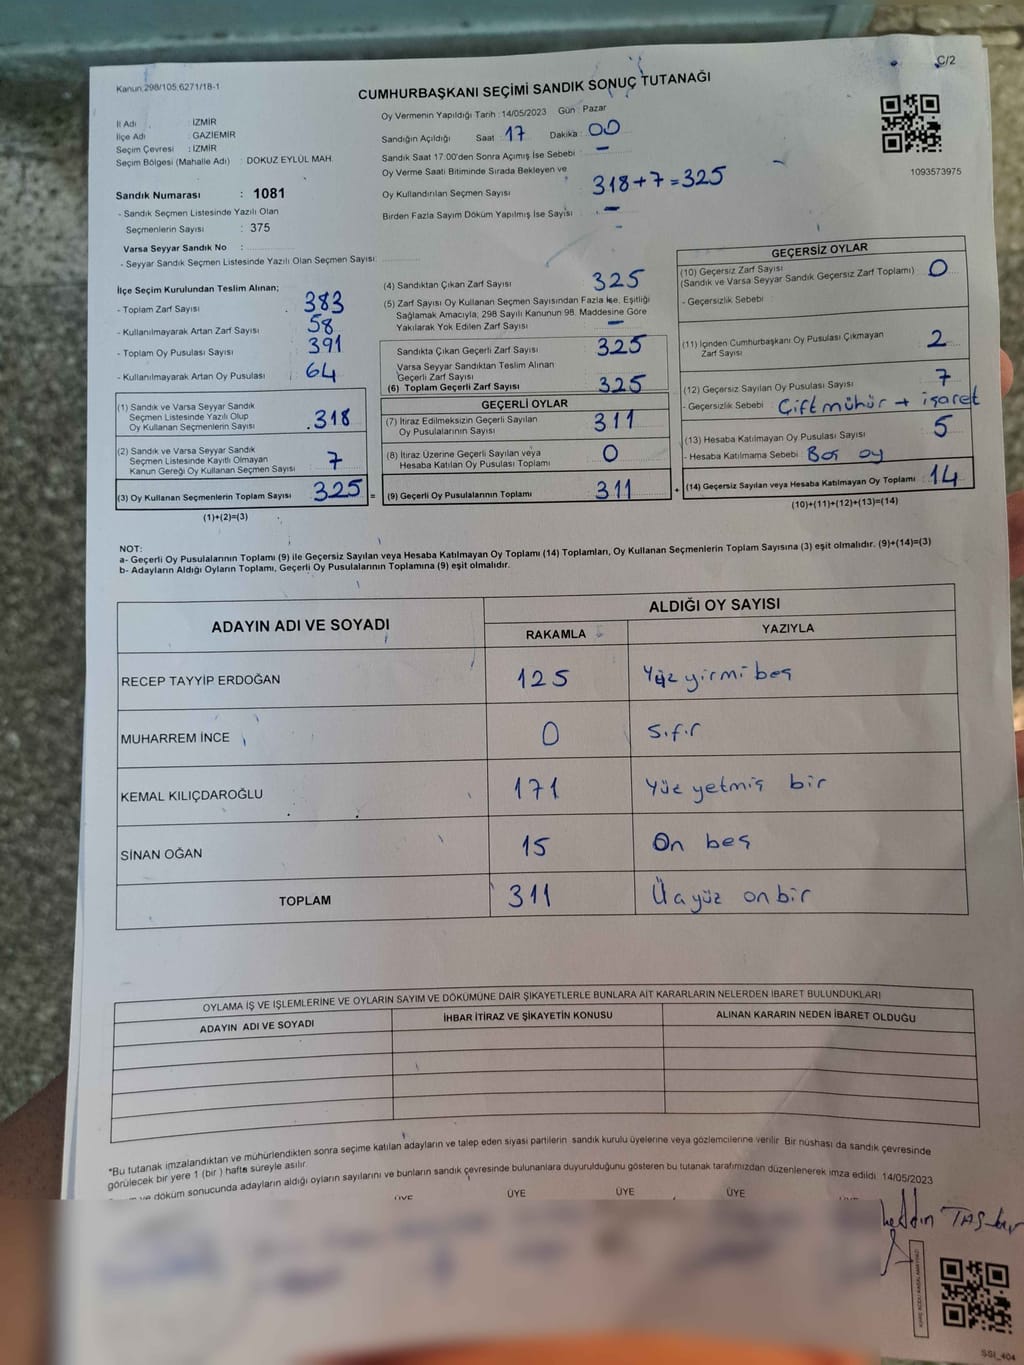 Kanun:298/105,6271/18-1
C/2
CUMHURBAŞKANI SEÇİMİ SANDIK SONUÇ TUTANAĞI
İl Adı : İZMİR
İlçe Adı : GAZİEMİR
Seçim Çevresi : İZMİR
Seçim Bölgesi (Mahalle Adı) : DOKUZ EYLÜL MAH.
Sandık Numarası : 1081
- Sandık Seçmen Listesinde Yazılı Olan
Seçmenlerin Sayısı : 375
Varsa Seyyar Sandık No :
- Seyyar Sandık Seçmen Listesinde Yazılı Olan Seçmen Sayısı:
Oy Vermenin Yapıldığı Tarih : 14/05/2023 Gün : Pazar
Sandığın Açıldığı Saat : 17 Dakika : 00
Sandık Saat 17:00'den Sonra Açımış İse Sebebi : –
Oy Verme Saati Bitiminde Sırada Bekleyen ve
Oy Kullandırılan Seçmen Sayısı : 318+7=325
Birden Fazla Sayım Döküm Yapılmış İse Sayısı : –
1093573975
İlçe Seçim Kurulundan Teslim Alınan;
- Toplam Zarf Sayısı : 383
- Kullanılmayarak Artan Zarf Sayısı : 58
- Toplam Oy Pusulası Sayısı : 391
- Kullanılmayarak Artan Oy Pusulası : 64
(1) Sandık ve Varsa Seyyar Sandık
Seçmen Listesinde Yazılı Olup
Oy Kullanan Seçmenlerin Sayısı : 318
(2) Sandık ve Varsa Seyyar Sandık
Seçmen Listesinde Kayıtlı Olmayan
Kanun Gereği Oy Kullanan Seçmen Sayısı : 7
(3) Oy Kullanan Seçmenlerin Toplam Sayısı : 325 =
(1)+(2)=(3)
(4) Sandıktan Çıkan Zarf Sayısı : 325
(5) Zarf Sayısı Oy Kullanan Seçmen Sayısından Fazla İse, Eşitliği
Sağlamak Amacıyla; 298 Sayılı Kanunun 98. Maddesine Göre
Yakılarak Yok Edilen Zarf Sayısı : –
Sandıkta Çıkan Geçerli Zarf Sayısı : 325
Varsa Seyyar Sandıktan Teslim Alınan
Geçerli Zarf Sayısı :
(6) Toplam Geçerli Zarf Sayısı : 325
GEÇERLİ OYLAR
(7) İtiraz Edilmeksizin Geçerli Sayılan
Oy Pusulalarının Sayısı : 311
(8) İtiraz Üzerine Geçerli Sayılan veya
Hesaba Katılan Oy Pusulası Toplamı : 0
(9) Geçerli Oy Pusulalarının Toplamı : 311 +
GEÇERSİZ OYLAR
(10) Geçersiz Zarf Sayısı
(Sandık ve Varsa Seyyar Sandık Geçersiz Zarf Toplamı) : 0
- Geçersizlik Sebebi :
(11) İçinden Cumhurbaşkanı Oy Pusulası Çıkmayan
Zarf Sayısı : 2
(12) Geçersiz Sayılan Oy Pusulası Sayısı : 7
- Geçersizlik Sebebi : Çift mühür + işaret
(13) Hesaba Katılmayan Oy Pusulası Sayısı : 5
- Hesaba Katılmama Sebebi : Boş oy
(14) Geçersiz Sayılan veya Hesaba Katılmayan Oy Toplamı : 14
(10)+(11)+(12)+(13)=(14)
NOT:
a- Geçerli Oy Pusulalarının Toplamı (9) ile Geçersiz Sayılan veya Hesaba Katılmayan Oy Toplamı (14) Toplamları, Oy Kullanan Seçmenlerin Toplam Sayısına (3) eşit olmalıdır. (9)+(14)=(3)
b- Adayların Aldığı Oyların Toplamı, Geçerli Oy Pusulalarının Toplamına (9) eşit olmalıdır.
ADAYIN ADI VE SOYADI ALDIĞI OY SAYISI
RAKAMLA YAZIYLA
RECEP TAYYİP ERDOĞAN 125 Yüz yirmi beş
MUHARREM İNCE 0 Sıfır
KEMAL KILIÇDAROĞLU 171 Yüz yetmiş bir
SİNAN OĞAN 15 On beş
TOPLAM 311 Üçyüz on bir
OYLAMA İŞ VE İŞLEMLERİNE VE OYLARIN SAYIM VE DÖKÜMÜNE DAİR ŞİKAYETLERLE BUNLARA AİT KARARLARIN NELERDEN İBARET BULUNDUKLARI
ADAYIN ADI VE SOYADI İHBAR İTİRAZ VE ŞİKAYETİN KONUSU ALINAN KARARIN NEDEN İBARET OLDUĞU
*Bu tutanak imzalandıktan ve mühürlendikten sonra seçime katılan adayların ve talep eden siyasi partilerin sandık kurulu üyelerine veya gözlemcilerine verilir. Bir nüshası da sandık çevresinde
görülecek bir yere 1 (bir) hafta süreyle asılır.
ve döküm sonucunda adayların aldığı oyların sayılarını ve bunların sandık çevresinde bulunanlara duyurulduğunu gösteren bu tutanak tarafımızdan düzenlenerek imza edildi. 14/05/2023
ÜYE ÜYE ÜYE ÜYE
SSI_404